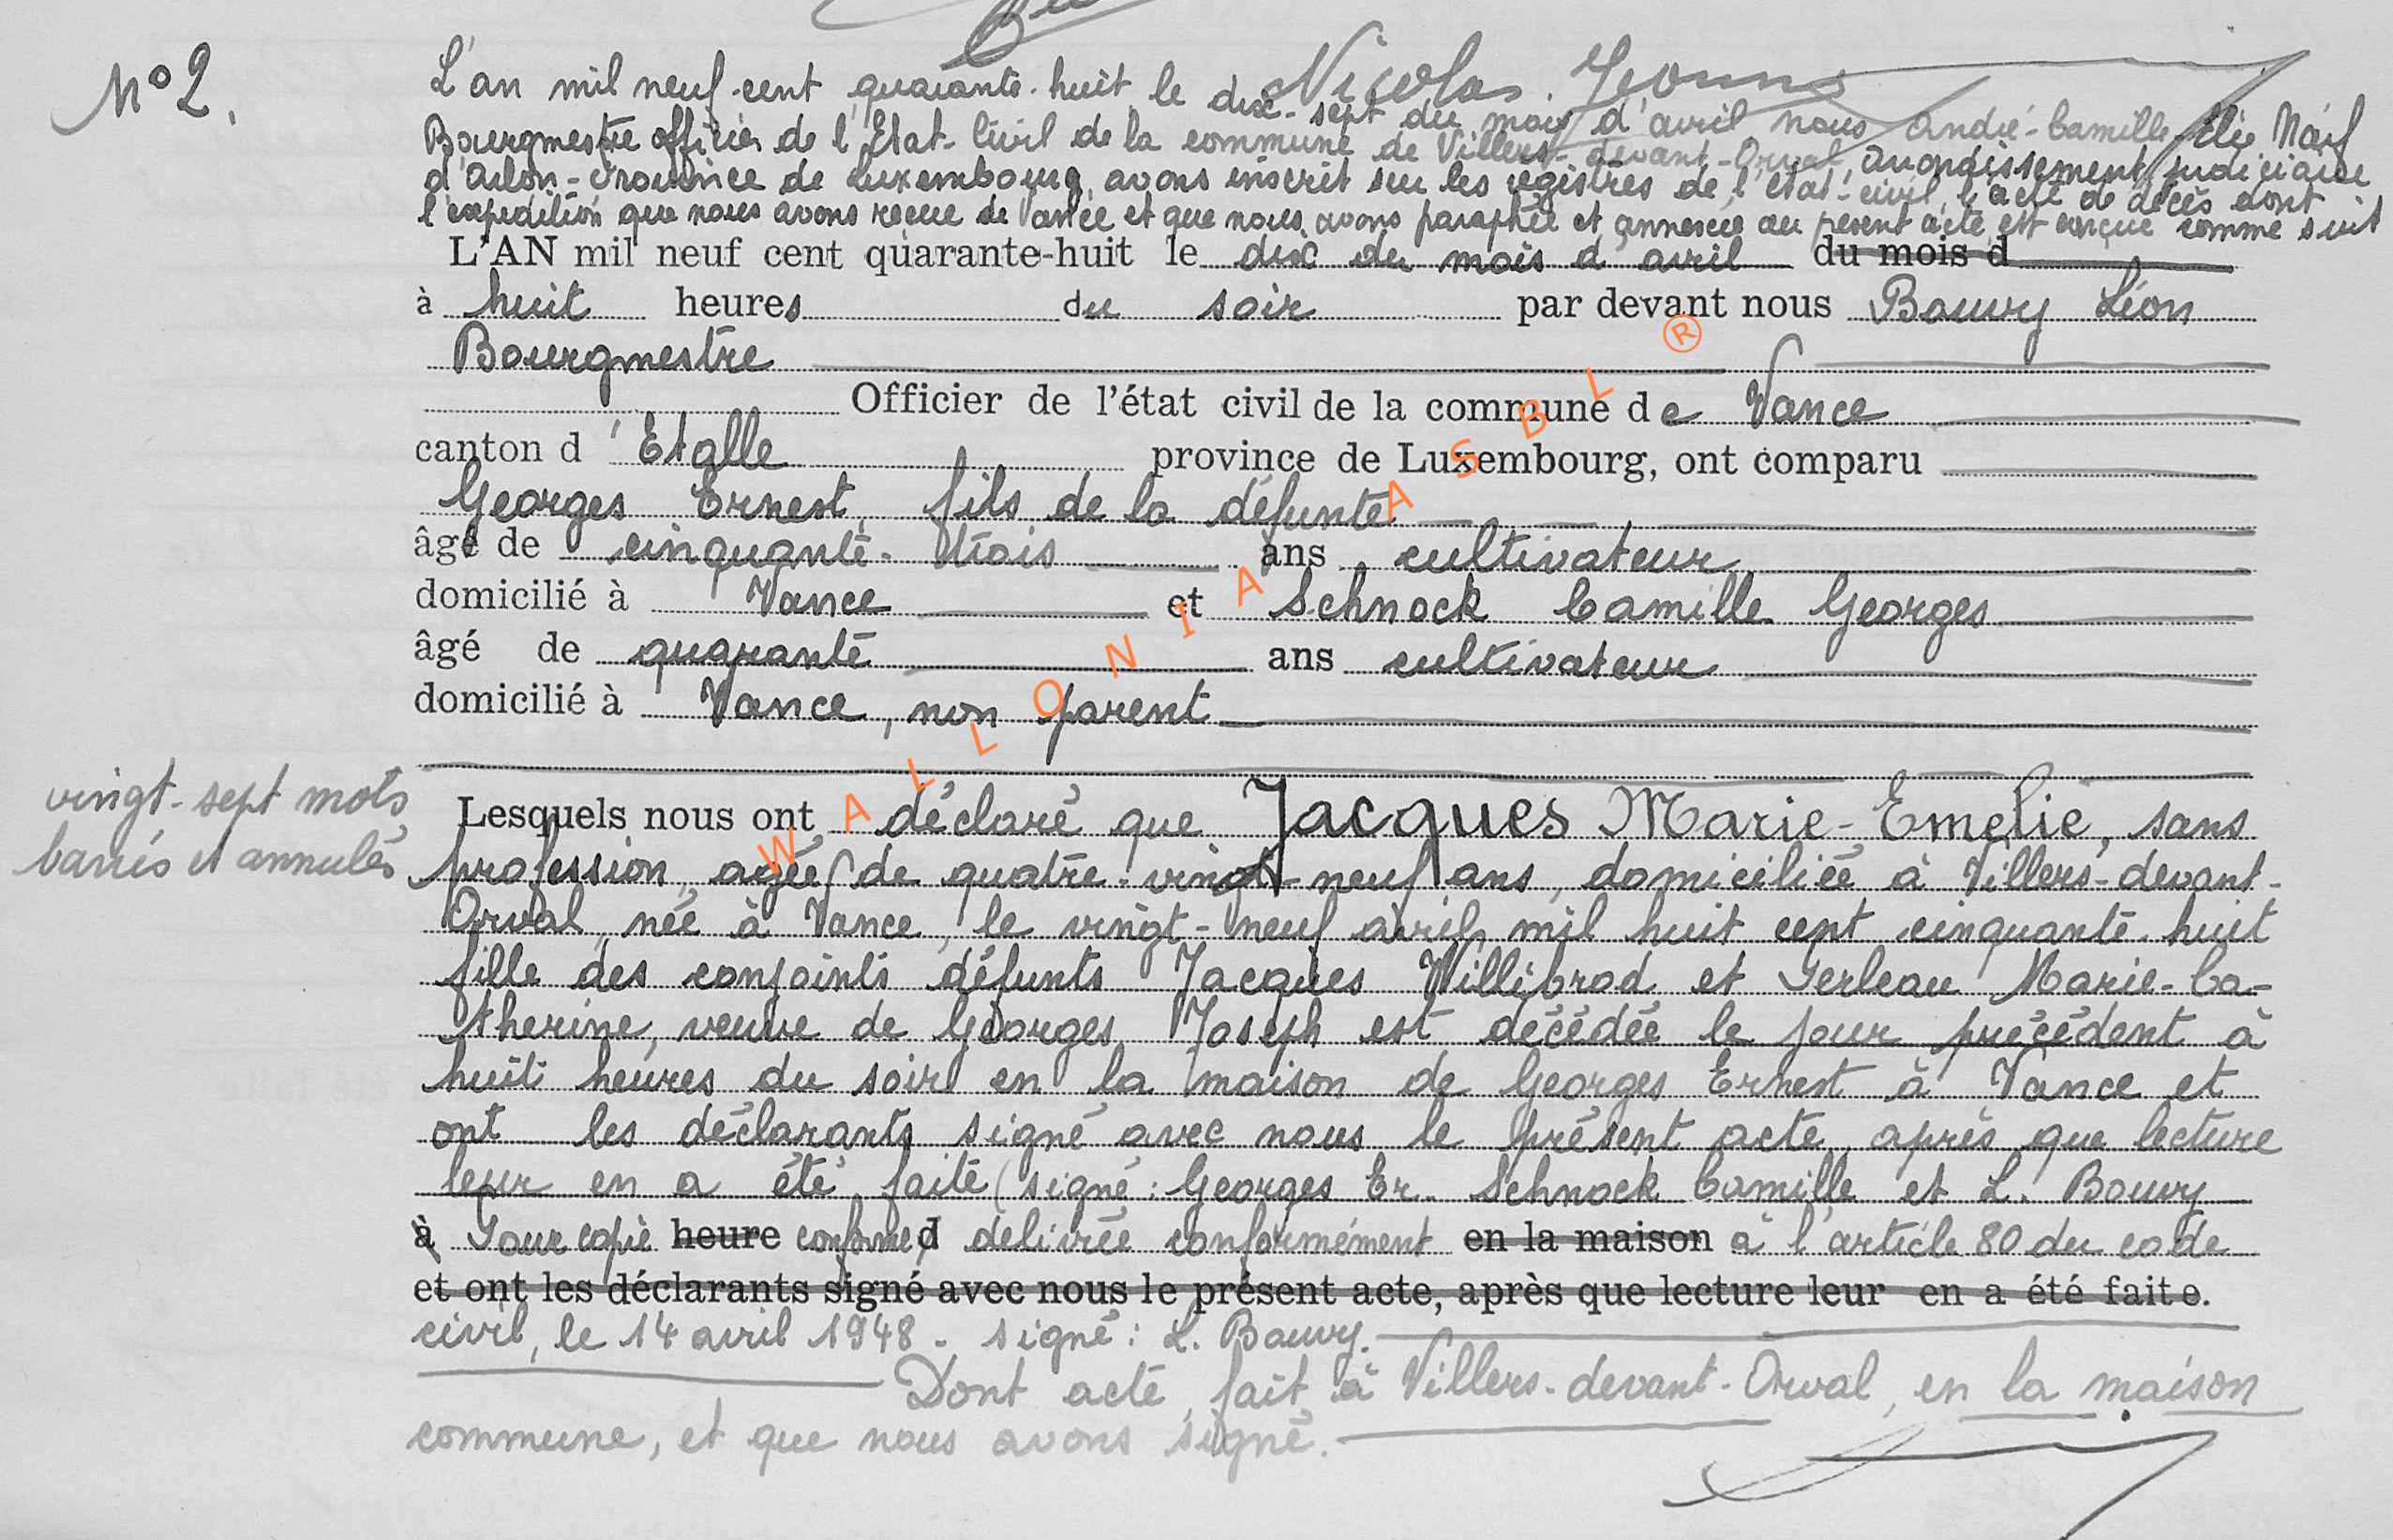 Nicolas Jeanne
N° 2.
L'an mil neuf-cent quarante-huit, le dix-sept du mois d'avril nous André-Camille-Elie Naif
Bourgmestre officier de l'Etat-Civil de la commune de Villers-devant-Orval, arrondissement judiciaire
d'Arlon-Province de Luxembourg, avons inscrit sur les registres de l'état-civil, l'acte de décès dont
l'expédition que nous avons reçue de Vance et que nous avons paraphée et annexée au présent acte est conçue comme suit
L'AN mil neuf cent quarante-huit le dix du mois d'avril du mois d
à huit heures du soir par devant nous Bouvy Léon
Bourgmestre
Officier de l'état civil de la commune de Vance
canton d'Etalle province de Luxembourg, ont comparu
Georges Ernest, fils de la défunte
âgé de cinquante-trois ans cultivateur
domicilié à Vance et Schnock Camille Georges
âgé de quarante ans cultivateur
domicilié à Vance, non parent
vingt-sept mots
barrés et annulés
Lesquels nous ont déclaré que Jacques Marie-Emelie, sans
profession, agée de quatre-vingt-neuf ans, domiciliée à Villers-devant-
Orval, née à Vance, le vingt-neuf avril mil huit cent cinquante-huit
fille des conjoints défunts Jacques Willibrod et Perleau Marie-Ca-
therine, veuve de Georges Joseph est décédée le jour précédent à
huit heures du soir en la maison de Georges Ernest à Vance et
ont les déclarants signé avec nous le présent acte, après que lecture
leur en a été faite (signé : Georges Er. Schnock Camille et L. Bouvy
à Pour copie heure conforme d délivrée conformément en la maison à l'article 80 du code
et ont les déclarants signé avec nous le présent acte, après que lecture leur en a été faite.
civil, le 14 avril 1948. signé : L. Bouvy.
Dont acte, fait à Villers-devant-Orval, en la maison
commune, et que nous avons signé.
WALLONIA ASBL ®